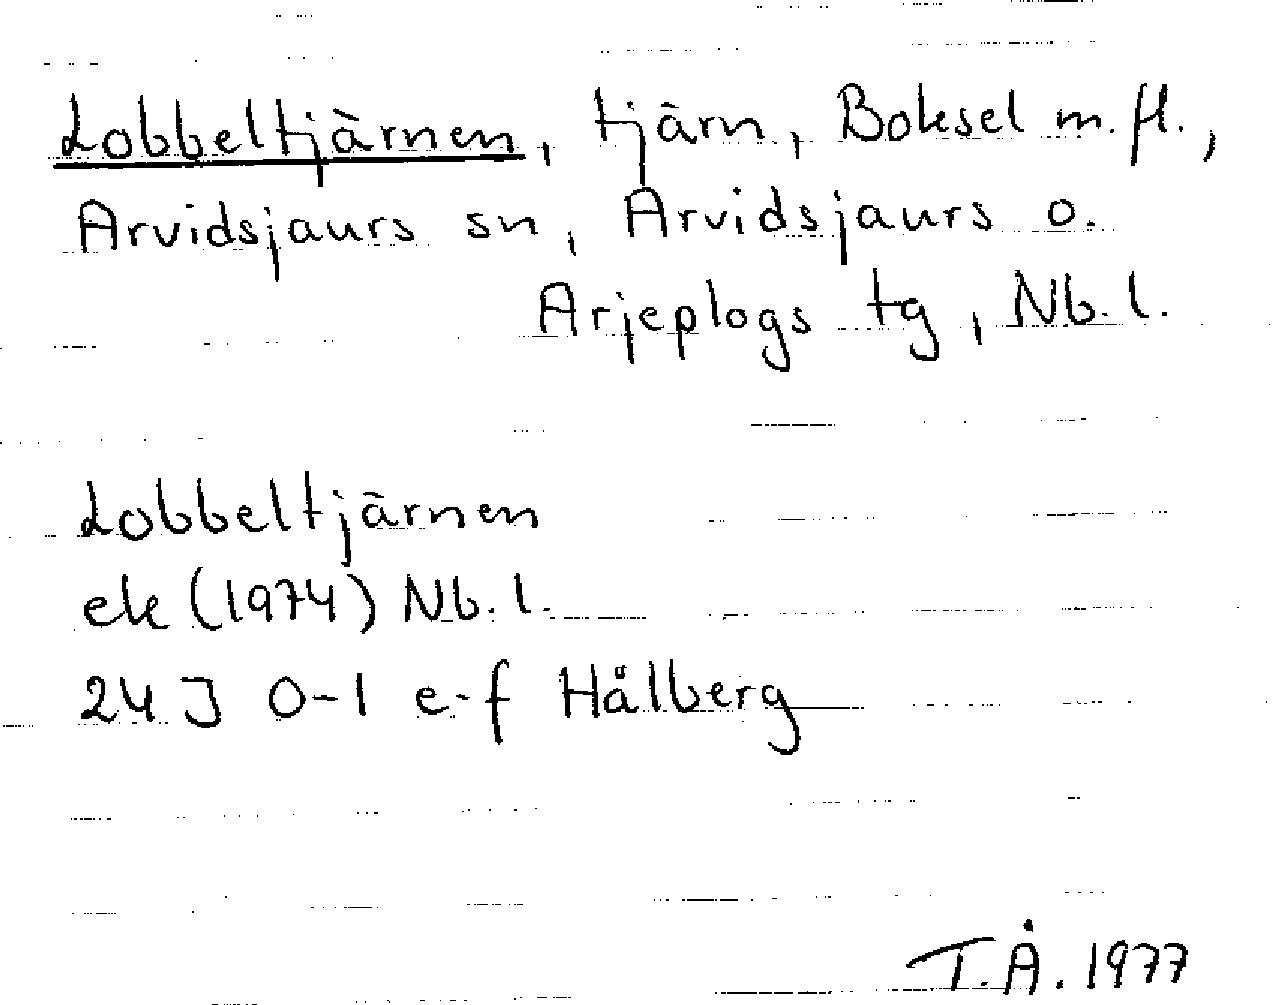 Lobbeltjärnen, tjärn, Boksel m.fl.,
Arvidsjaurs sn, Arvidsjaurs o.
Arjeplogs tg, Nb.l.
Lobbeltjärnen
ek (1974) Nb.l.
24 J 0-1 e-f Hålberg
T.Å. 1977